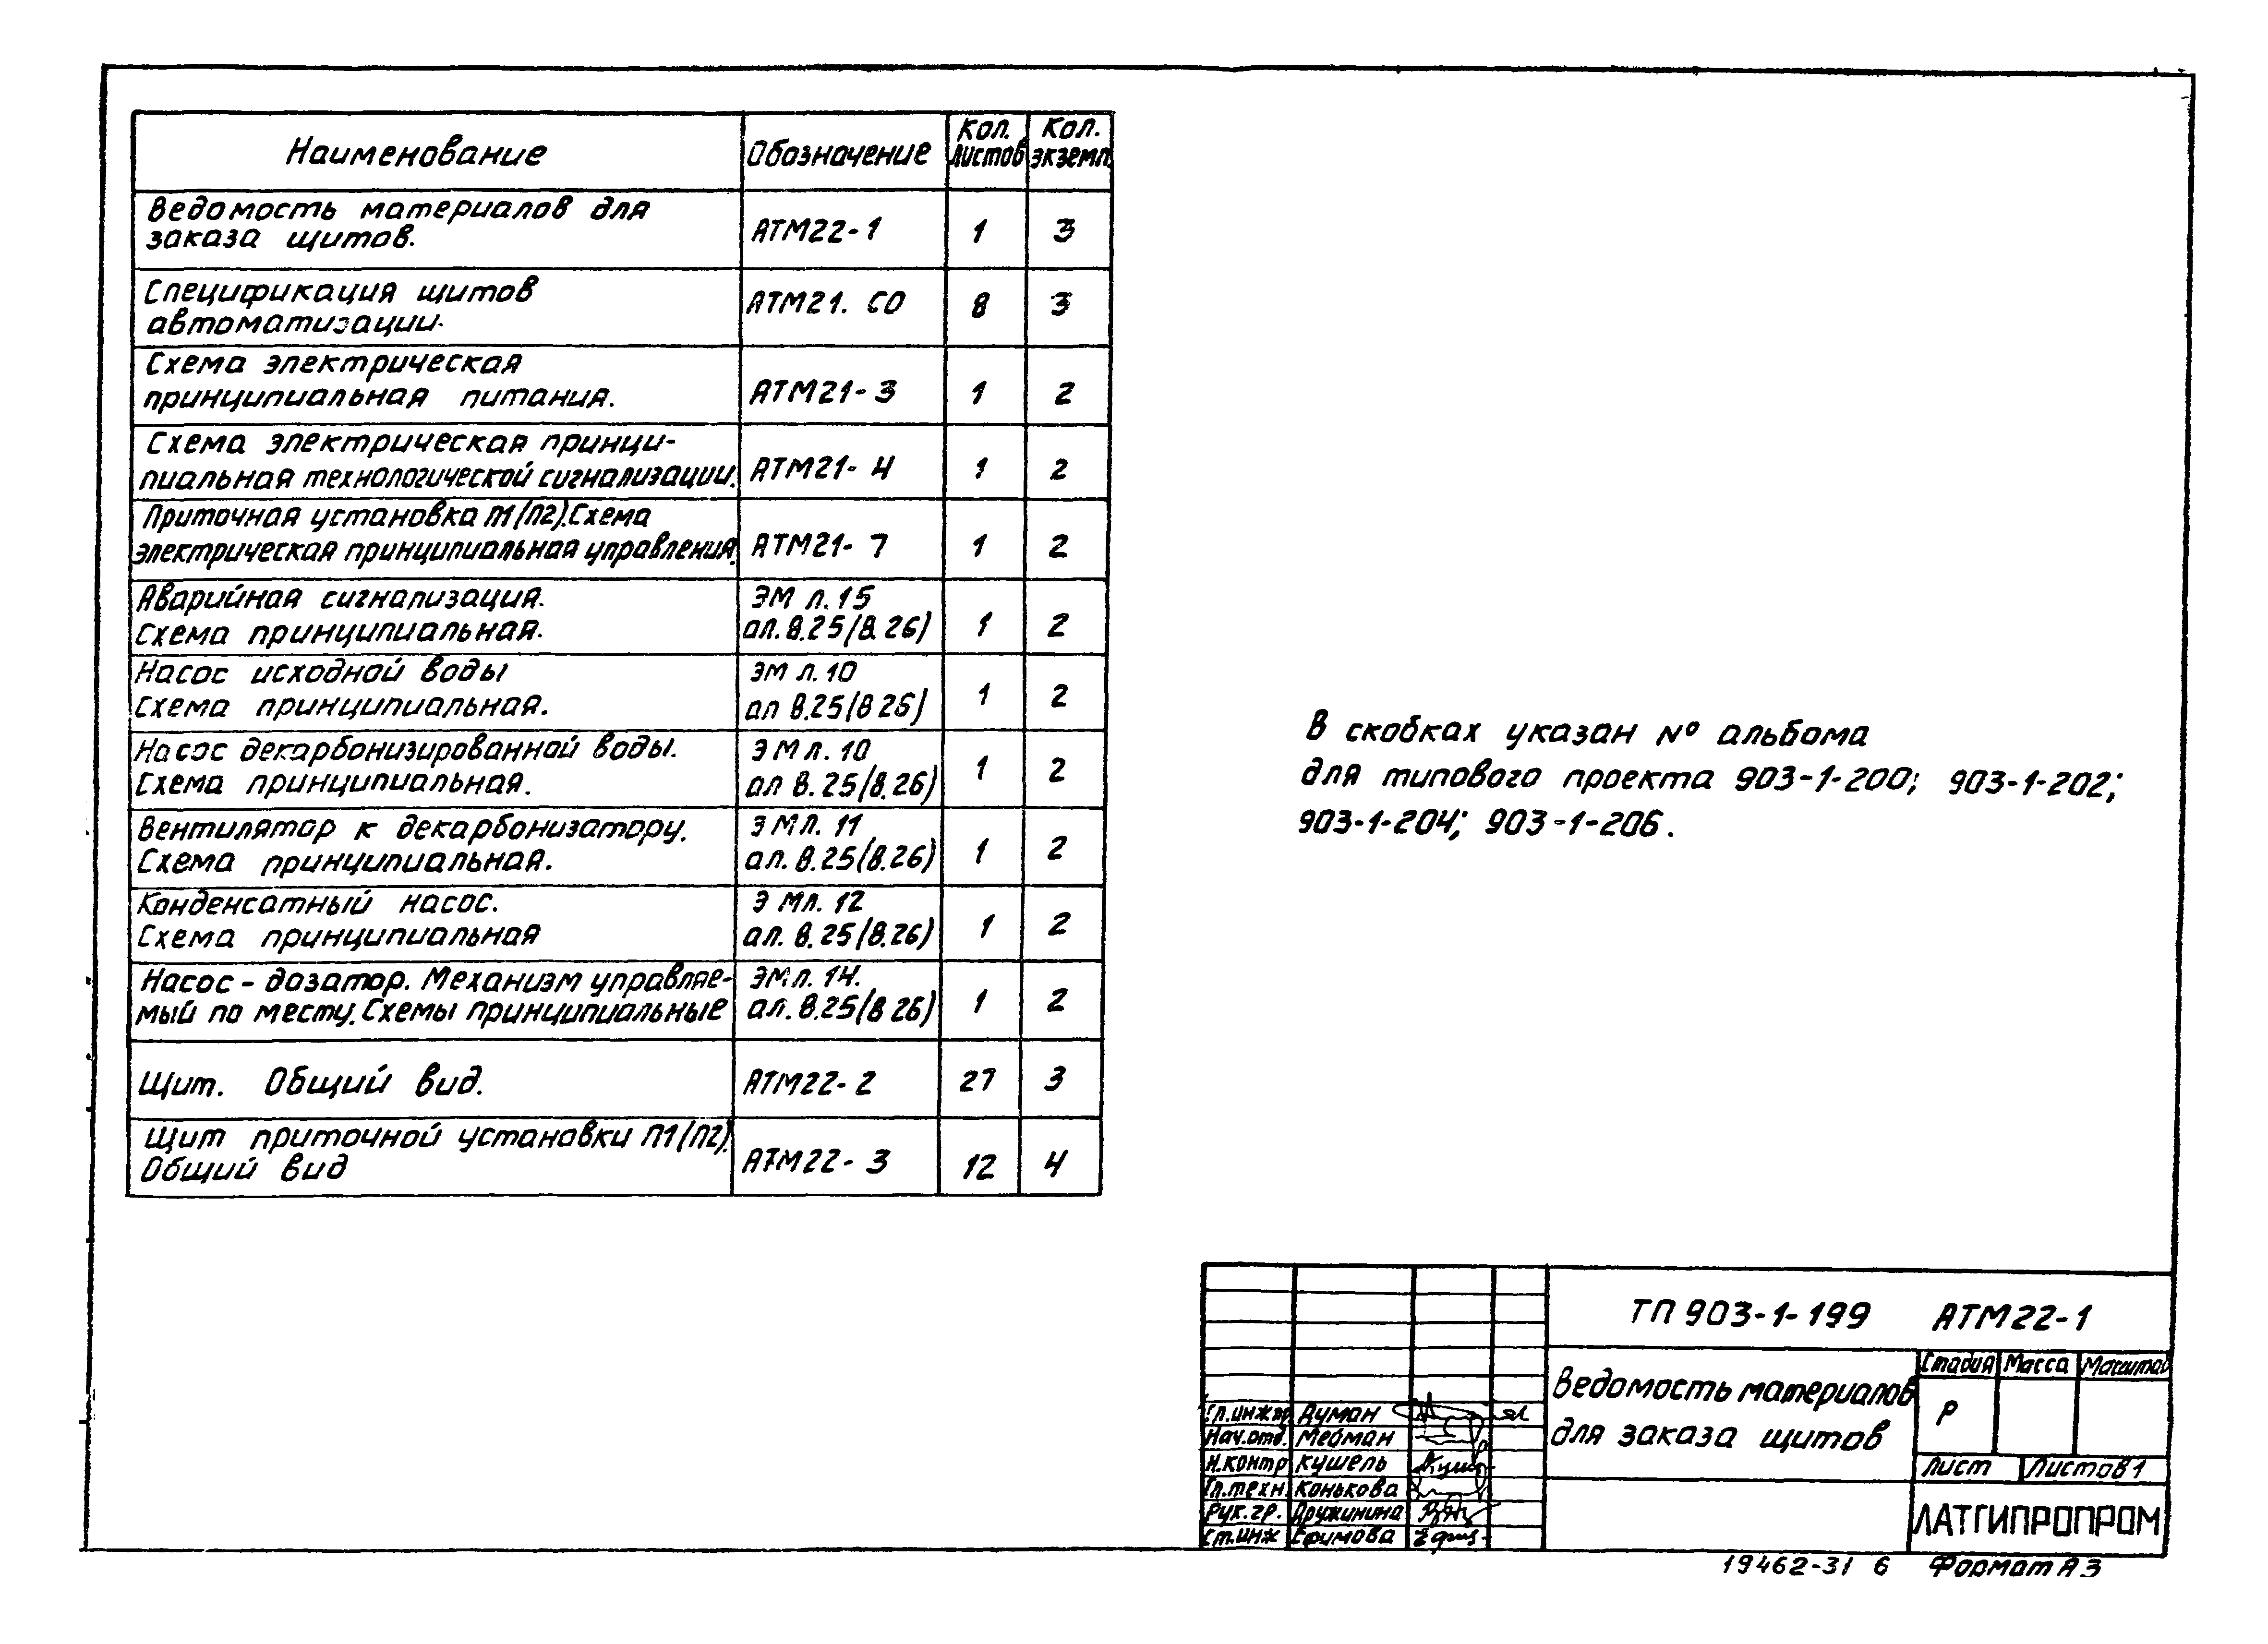 Наименование
Обозначение
Кол. листов
Кол. экземп.
Ведомость материалов для
заказа щитов.
АТМ22-1
1
3
Спецификация щитов
автоматизации.
АТМ21. СО
8
3
Схема электрическая
принципиальная питания.
АТМ21-3
1
2
Схема электрическая принци-
пиальная технологической сигнализации.
АТМ21-4
1
2
Приточная установка П1(П2).Схема
электрическая принципиальная управления.
АТМ21-7
1
2
Аварийная сигнализация.
Схема принципиальная.
ЭМ л.15
ал.8.25/8.26)
1
2
Насос исходной воды
Схема принципиальная.
ЭМ л.10
ал 8.25(8 26)
1
2
Насос декарбонизированной воды.
Схема принципиальная.
ЭМ л. 10
ал 8.25(8.26)
1
2
Вентилятор к декарбонизатору.
Схема принципиальная.
ЭМЛ. 11
ал. 8.25(8.26)
1
2
Конденсатный насос.
Схема принципиальная
ЭМл. 12
ал. 8.25(8.26)
1
2
Насос - дозатор. Механизм управляе-
мый по месту. Схемы принципиальные
ЭМл. 14.
ал. 8.25(8 26)
1
2
Щит. Общий вид.
АТМ22-2
27
3
Щит приточной установки П1(П2).
Общий вид
АТМ22-3
12
4
В скобках указан № альбома
для типового проекта 903-1-200; 903-1-202;
903-1-204; 903-1-206.
ТП 903-1-199 АТМ22-1
Ведомость материалов
для заказа щитов
Стадия Масса Масштаб
Р
Лист Листов 1
ЛАТГИПРОПРОМ
Гл.инж.пр Думан
Нач.отд. Мебман
Н.контр Кушель
Гл.техн. Конькова
Рук.гр. Дружинина
Ст.инж Ефимова
19462-31 6 Формат А3